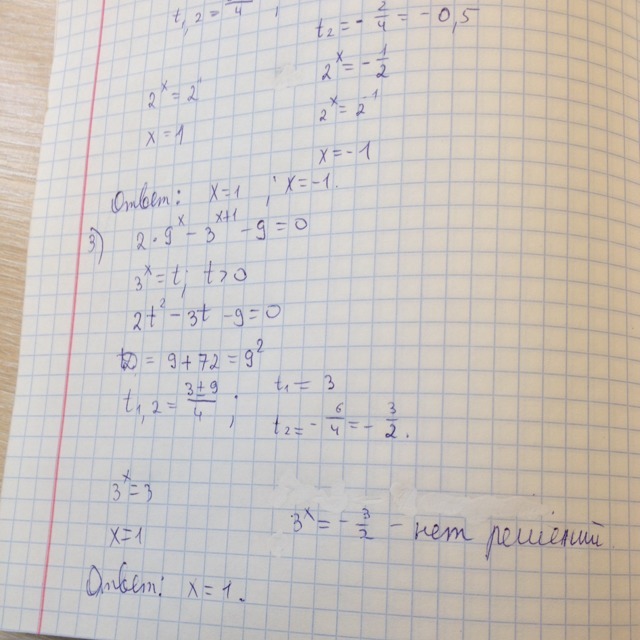 t₁,₂ = /4 ; t₂ = - 2/4 = - 0,5
2ˣ = 2¹ 2ˣ = - 1/2
x = 1 2ˣ = 2⁻¹
x = -1
Ответ: x=1 ; x=-1.
3) 2·9ˣ - 3ˣ⁺¹ - 9 = 0
3ˣ = t; t>0
2t² - 3t - 9 = 0
D = 9 + 72 = 9²
t₁,₂ = 3±9/4 ; t₁ = 3
t₂ = - 6/4 = - 3/2.
3ˣ = 3
3ˣ = - 3/2 - нет решений
x=1
Ответ: x=1.